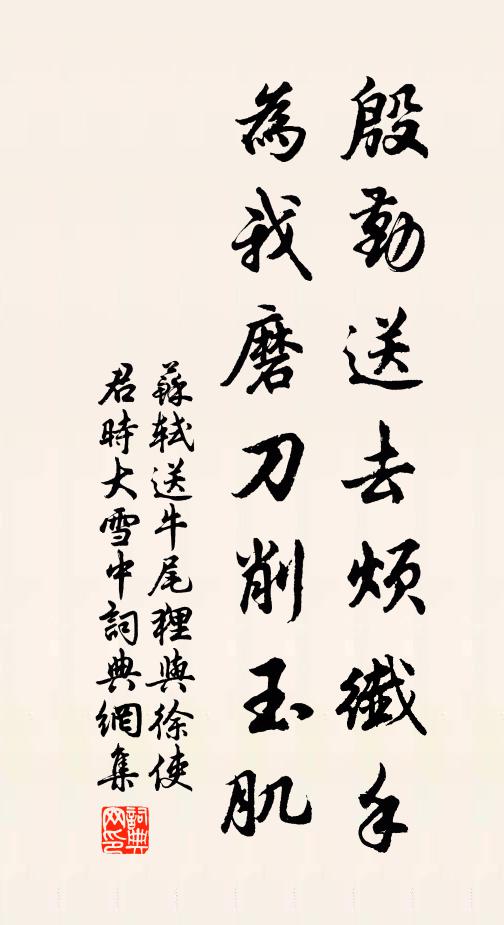 殷勤送去煩纖手
為我磨刀削玉肌
蘇軾送牛尾狸與徐使
君時大雪中詞典網集
詞典
网印